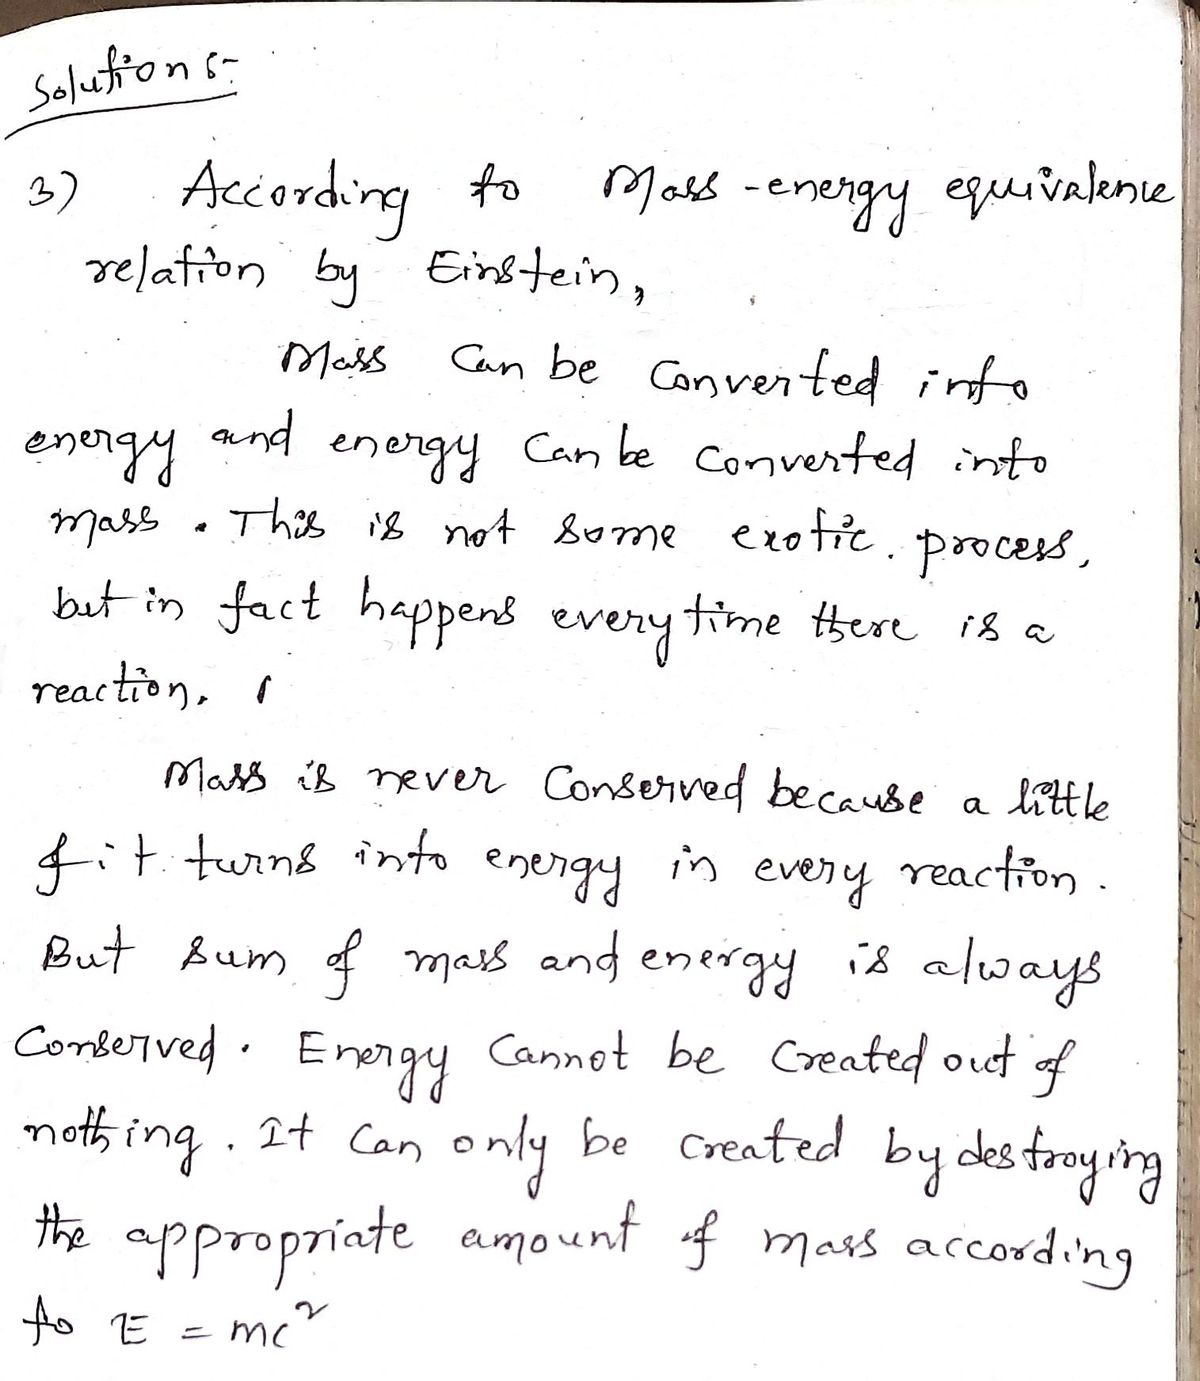 Solutions:-
3) According to Mass-energy equivalence
relation by Einstein,
Mass can be converted into
energy and energy can be converted into
mass. This is not some exotic process,
but in fact happens every time there is a
reaction.
Mass is never conserved because a little
of it turns into energy in every reaction.
But sum of mass and energy is always
conserved. Energy cannot be created out of
nothing. It can only be created by destroying
the appropriate amount of mass according
to E = mc²